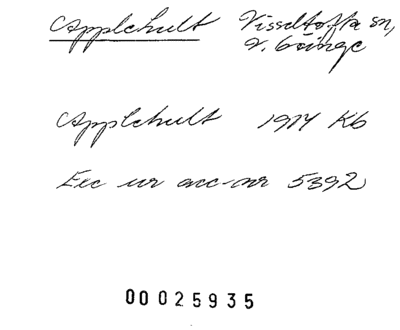 Applehult Visseltofta sn,
V. Göinge
Applehult 1914 Kb
Exc ur acc-nr 5392
00025935